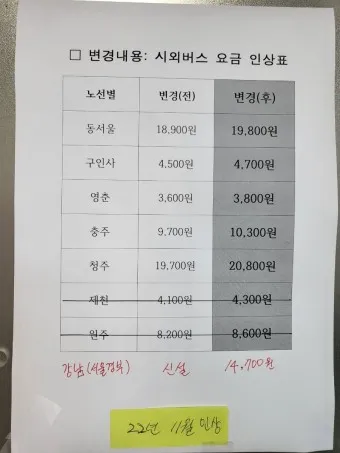 □ 변경내용: 시외버스 요금 인상표
노선별 변경(전) 변경(후)
동서울 18,900원 19,800원
구인사 4,500원 4,700원
영춘 3,600원 3,800원
충주 9,700원 10,300원
청주 19,700원 20,800원
제천 4,100원 4,300원
원주 8,200원 8,600원
강남(서울경부) 신설 14,700원
22년 11월 인상